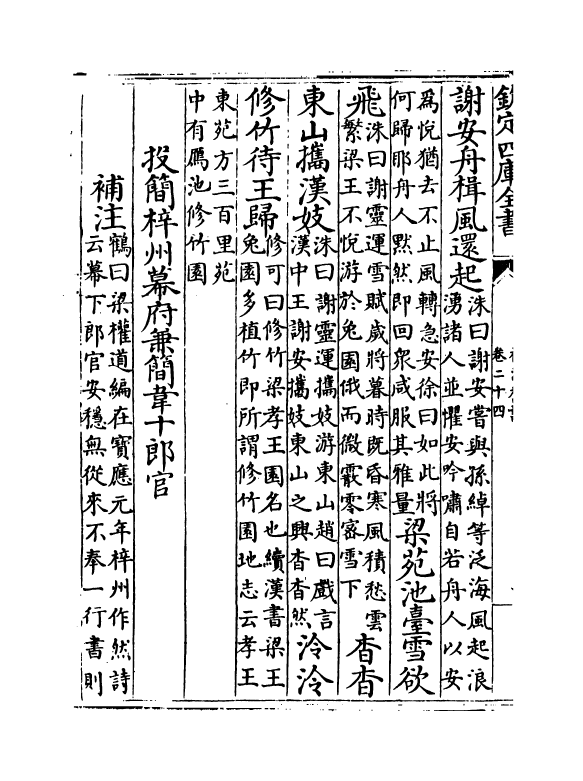 欽定四庫全書
卷二十四
謝安舟楫風還起
洙曰謝安嘗與孫綽等泛海風起浪
湧諸人並懼安吟嘯自若舟人以安
為悅猶去不止風轉急安徐曰如此將
何歸耶舟人黙然即回衆咸服其雅量
梁苑池臺雪欲
飛
洙曰謝靈運雪賦歲將暮時既昏寒風積愁雲
繁梁王不悅游於兔園俄而微霰零密雪下
杳杳
東山攜漢妓
洙曰謝靈運攜妓游東山趙曰戲言
漢中王謝安攜妓東山之興杳杳然
泠泠
修竹待王歸
修可曰修竹梁孝王園名也續漢書梁王
兔園多植竹即所謂修竹園地志云孝王
東苑方三百里苑
中有鴈池修竹園
投簡梓州幕府兼簡韋十郎官
補注
鶴曰梁權道編在寳應元年梓州作然詩
云幕下郎官安穩無從來不奉一行書則